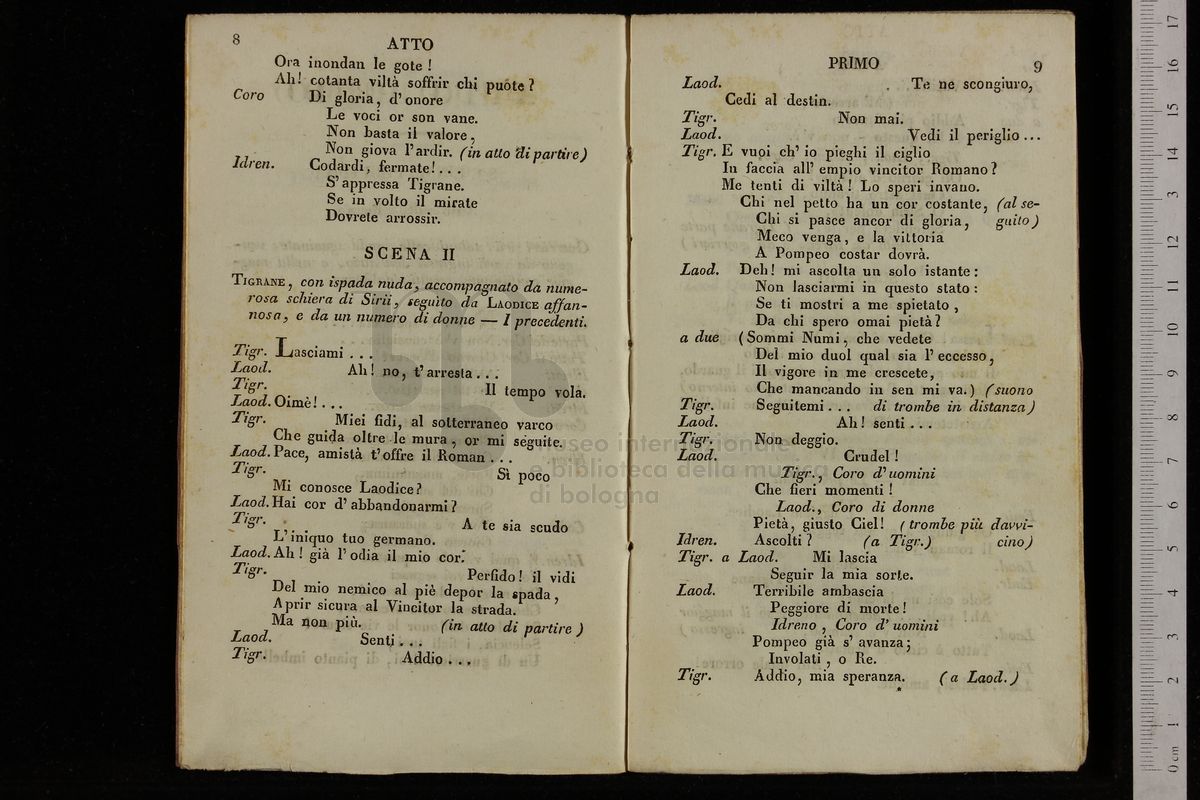 8
ATTO
Ora inondan le gote !
Ah! cotanta viltà soffrir chi puote ?
Coro Di gloria, d' onore
Le voci or son vane.
Non basta il valore,
Non giova l'ardir. (in atto di partire)
Idren. Codardi, fermate!...
S'appressa Tigrane.
Se in volto il mirate
Dovrete arrossir.
SCENA II
TIGRANE, con ispada nuda, accompagnato da nume-
rosa schiera di Sirii, seguito da LAODICE affan-
nosa, e da un numero di donne — I precedenti.
Tigr. Lasciami ...
Laod. Ah! no, t'arresta...
Tigr. Il tempo vola.
Laod. Oimè!...
Tigr. Miei fidi, al sotterraneo varco
Che guida oltre le mura, or mi seguite.
Laod. Pace, amistà t'offre il Roman ...
Tigr. Sì poco
Mi conosce Laodice?
Laod. Hai cor d' abbandonarmi?
Tigr. A te sia scudo
L'iniquo tuo germano.
Laod. Ah! già l'odia il mio cor.
Tigr. Perfido! il vidi
Del mio nemico al piè depor la spada,
Aprir sicura al Vincitor la strada.
Ma non più. (in atto di partire )
Laod. Senti...
Tigr. Addio...
PRIMO
9
Laod. Te ne scongiuro,
Cedi al destin.
Tigr. Non mai.
Laod. Vedi il periglio...
Tigr. E vuoi ch' io pieghi il ciglio
In faccia all' empio vincitor Romano?
Me tenti di viltà! Lo speri invano.
Chi nel petto ha un cor costante, (al se-
Chi si pasce ancor di gloria, guito)
Meco venga, e la vittoria
A Pompeo costar dovrà.
Laod. Deh! mi ascolta un solo istante:
Non lasciarmi in questo stato:
Se ti mostri a me spietato,
Da chi spero omai pietà?
a due (Sommi Numi, che vedete
Del mio duol qual sia l' eccesso,
Il vigore in me crescete,
Che mancando in sen mi va.) (suono
Tigr. Seguitemi... di trombe in distanza)
Laod. Ah! senti...
Tigr. Non deggio.
Laod. Crudel!
Tigr., Coro d'uomini
Che fieri momenti!
Laod., Coro di donne
Pietà, giusto Ciel! (trombe più davvi-
Idren. Ascolti? (a Tigr.) cino)
Tigr. a Laod. Mi lascia
Seguir la mia sorte.
Laod. Terribile ambascia
Peggiore di morte!
Idreno, Coro d' uomini
Pompeo già s' avanza;
Involati, o Re.
Tigr. Addio, mia speranza. (a Laod.)
*
museo internazionale
e biblioteca della musica
di bologna
0 cm 1 2 3 4 5 6 7 8 9 10 11 12 3 14 15 16 17